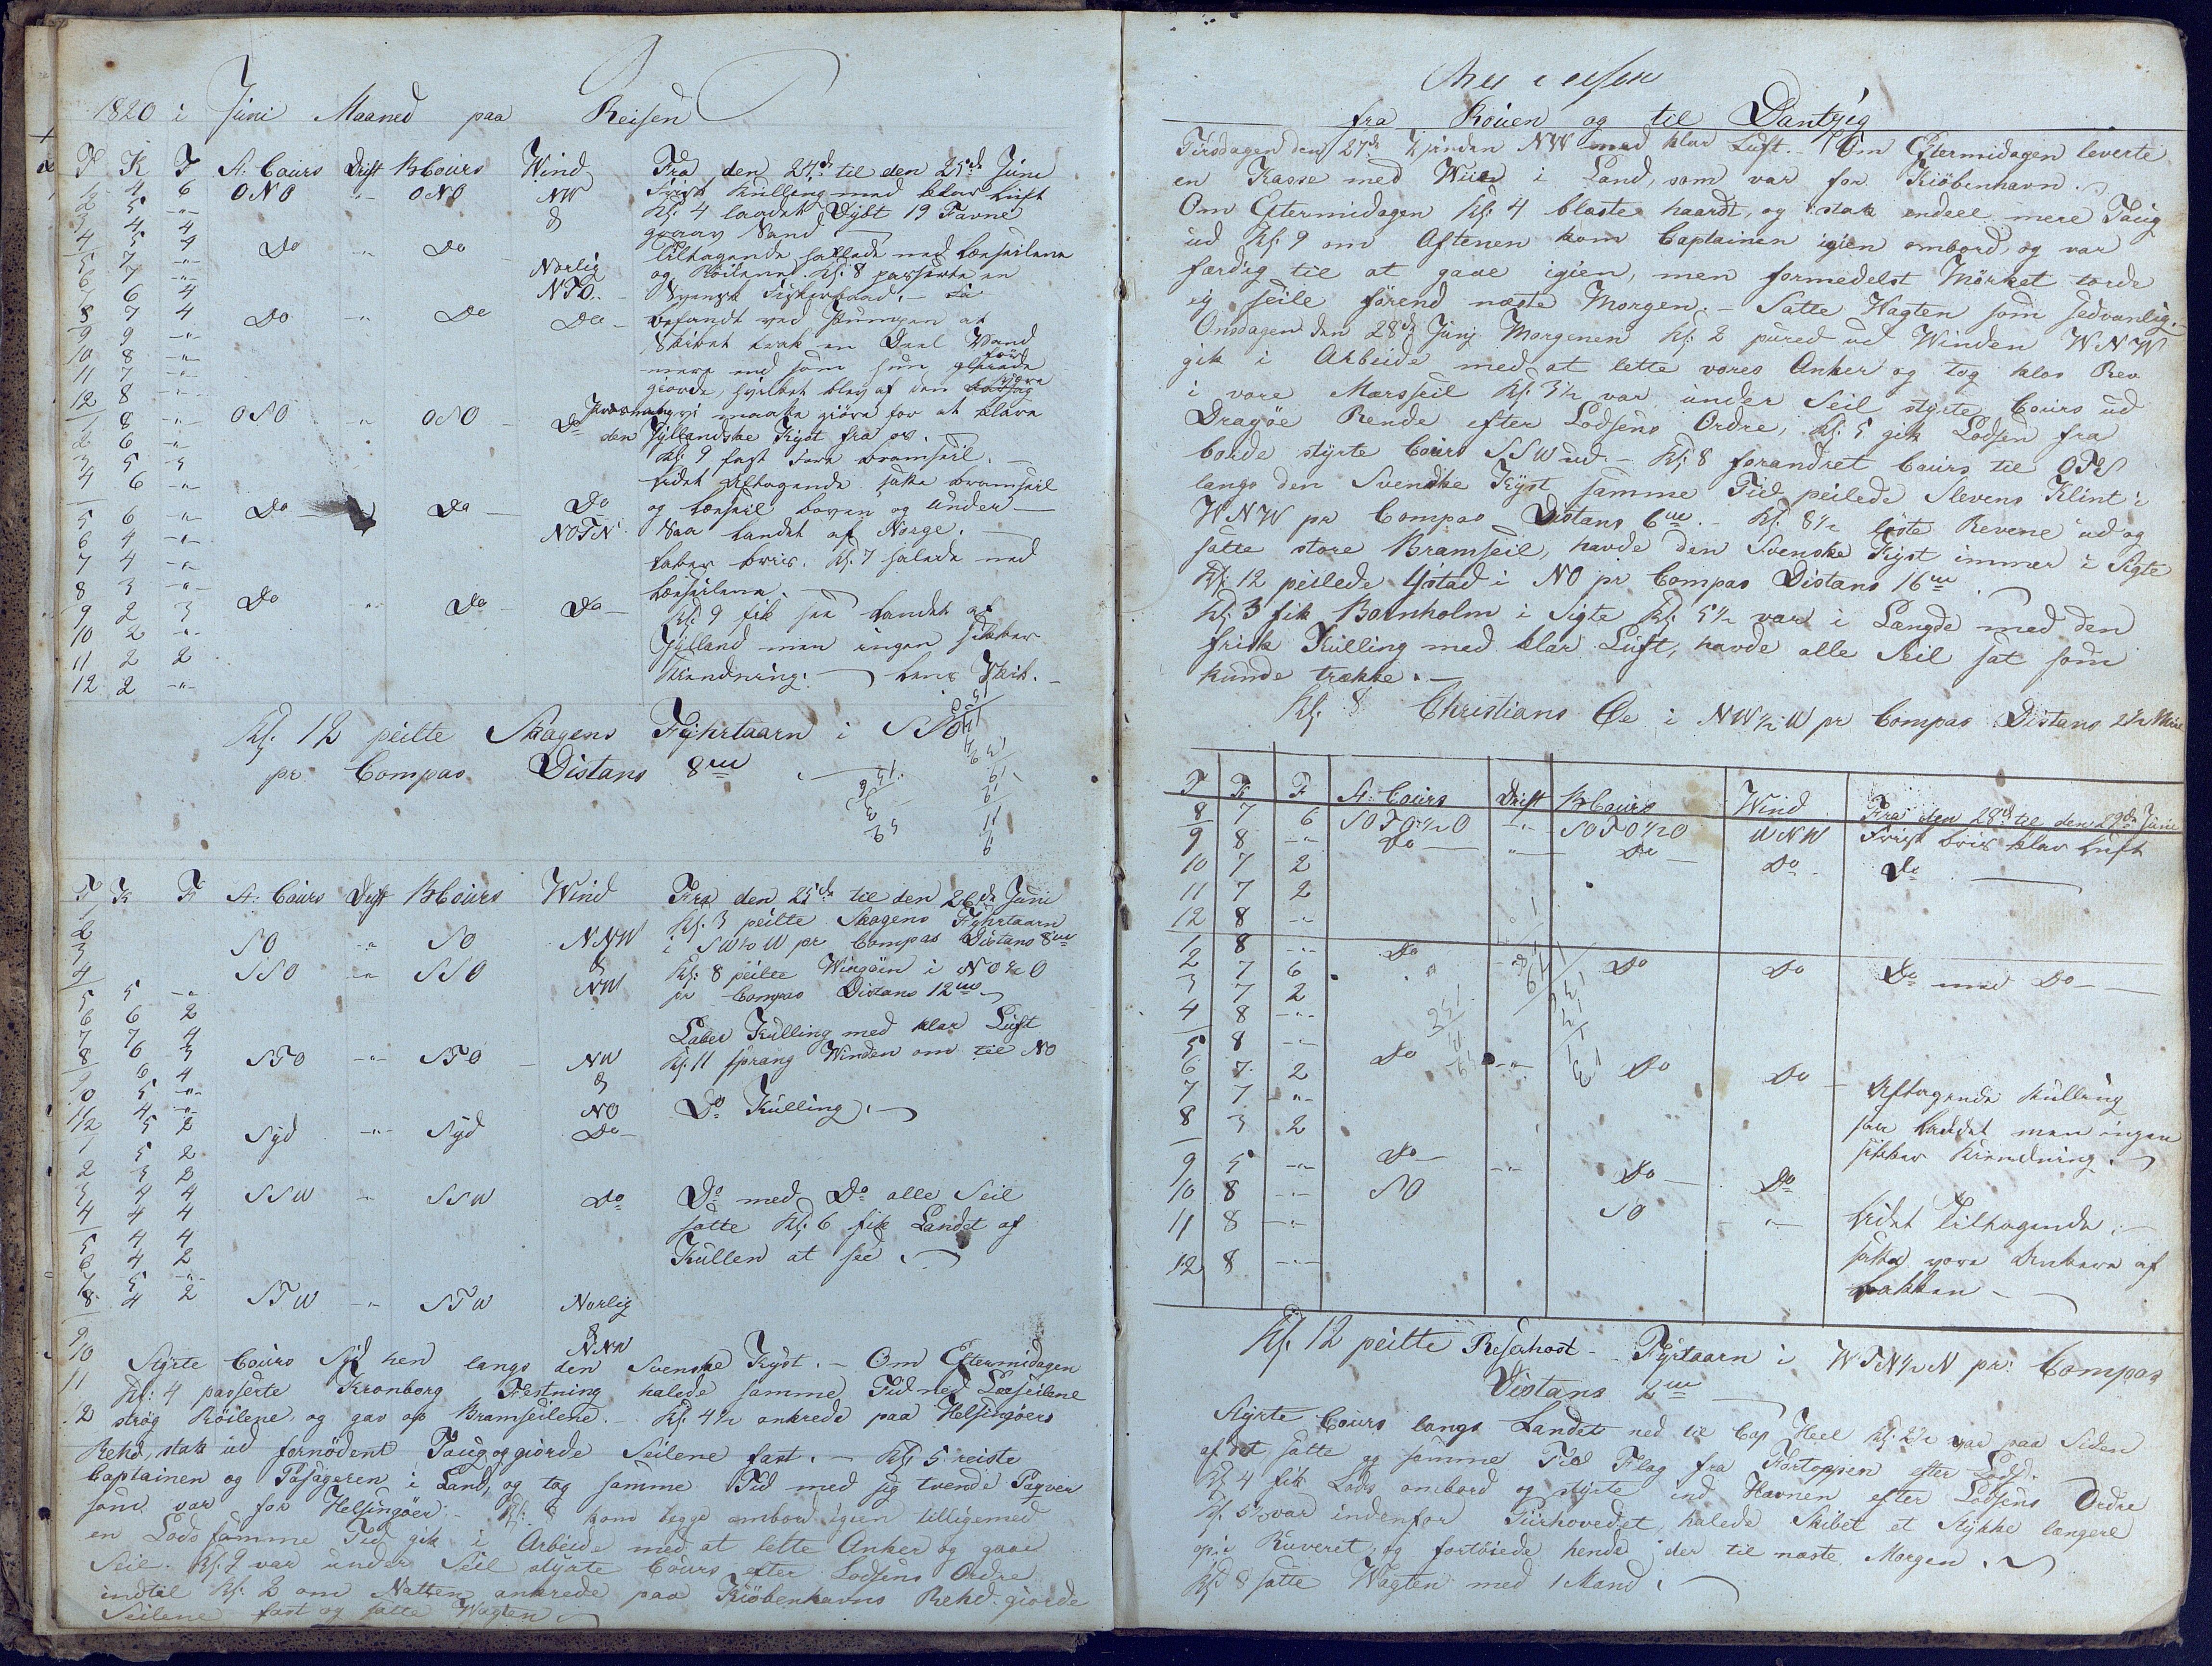 1820 i Juni Maaned paa Reisen
T K F A: Cours Drift B Cours Wind Fra den 24de til den 25de Juni
1 4 6 ONO " ONO NW Frisk Kulling med klar Luft
2 5 -"- & Kl: 4 loadet Dybt 19 Favne
3 4 4 graat Sand
4 5 4 Do " Do Tiltagende hallede ned Læeseilene
5 7 -"- Norlig og Röilene. Kl: 8 passerte en
6 7 -"- NTO Svensk Fiskerbaad. –
7 6 4
8 7 4 Do " Do Do befandt ved Pumpen at
9 9 -"- Skibet trak en Deel Vand
10 8 -"- mere end som hun för
11 7 -"- giorde, hvilket blev af den svære
12 8 -"- Presning vi maatte giöre for at klare
1 8 -"- OSO " OSO Do den Jyllandske Kyst fra os.
2 6 -"-
3 5 3 Kl: 9 fast Fore Bramseil. –
4 6 -"- Lidet Aftagende satte Bramseil
5 6 -"- Do Do Do og Læeseil boven og under –
6 4 -"- NOTN Saa Landet af Norge. –
7 4 -"- Laber bris. Kl. 7 halede ned
8 3 -"- Læeseilene.
9 2 3 Do " Do Do Kl: 9 fik see Landet af
10 2 -"- Jylland men ingen sikker
11 2 2 Kiendning. – Lens Skib. –
12 2 -"-
Kl. 12 peilte Skagens Fyhrtaarn i SSO
pr. Compas Distans 8m
T K F A: Cours Drift B Cours Wind Fra den 25de til den 26de Juni
1 Kl: 3 peilte Skagens Fyhrtaarn
2 SO " SO NNW i SW½W pr Compas Distans 8m
3 SSO " SSO & Kl: 8 peilte Wingöin i NO½O
4 NW pr Compas Distans 12m
5 5 -"-
6 6 2 Laber Kulling med klar Luft
7 7 4
8 6 3 STO -"- STO NW Kl: 11 sprang Winden om til NO
9 6 4 &
10 5 -"- NO Do Kulling. –
11 4 -"-
12 5 2 Syd -"- Syd Do
1 5 2
2 3 2
3 4 4 SSW " SSW Do Do med Do alle Seil
4 4 4 satte Kl: 6 fik Landet af
5 4 4 Kullen at see.
6 4 2
7 5 -"-
8 4 2 STW " STW Norlig
9 &
10 NNW
Styrte Cours Syd hen langs den Svenske Kyst. – Om Eftermidagen
11 Kl: 4 passerte Kronborg Festning halede samme Tid ned Læeseilene
12 strög Röilene og gav op Bramseilene. – Kl: 4½ ankrede paa Helsingöers
Rehd, stak ud fornödent Taug og giorde Seilene fast. – Kl: 5 reiste
Captainen og Pasageren i Land, og tog samme Tid med sig tvende
som var for Helsingöer. – Kl: 8 kom begge ombord igien tilligemed
en Lods samme Tid gik i Arbeide med at lette Anker og gaae
Seil. Kl: 9 var under Seil styrte Cours efter Lodsens Ordre
indtil Kl: 2 om Natten ankrede paa Kiöbenhavns Rehd. giorde
Seilene fast og satte Wagten
fra Rouen og til Dantzig
Tirsdagen den 27de Winden NW med klar Luft. – Om Eftermidagen leverte
en Kasse med Wiin i Land, som var for Kiöbenhavn.
Om Eftermidagen Kl: 4 blæste haardt, og stak endeel mere Taug
ud Kl: 9 om Aftenen kom Captainen igien ombord, og var
færdig til at gaae igien, men formedelst Mörket torde
ej seile förend næste Morgen. – Satte Wagten som sedvanlig. –
Onsdagen den 28de Juni Morgenen Kl: 2 pured ud Winden WNW
gik i Arbeide med at lette vores Anker og tog klos Rev
i vore Mærsseil Kl: 3½ var under Seil styrte Cours ud
Dragöe Rende efter Lodsens Ordre, Kl: 5 gik Lodsen fra
borde styrte Cours SSW ud. – Kl: 8 forandret Cours til OTS
langs den Svendske Kyst samme Tid peilede Stevens Klint i
WNW pr Compas Distans 6m. – Kl: 8½ löste Revene ud og
satte store Bramseil, havde den Svenske Kyst immer i Sigte
Kl: 12 peilede Ystad i NO pr Compas Distans 16m.
Kl: 3 fik Bornholm i Sigte Kl: 5½ var i Længde med den
frisk Kulling med klar Luft, havde alle Seil sat som
kunde trække. –
Kl: 8 Christians Oe i NW½W pr Compas Distans 2½ Miil
T K F A: Cours Drift B Cours Wind Fra den 28de til den 29de Juni
8 7 6 SOTO½O -"- SOTO½O WNW Frisk bris klar Luft
9 8 -"- Do " Do Do Do
10 7 2
11 7 2
12 8 -"-
1 8 -"- Do Do Do Do med Do
2 7 6
3 7 2
4 8 -"-
5 8 -"-
6 7 2 Do -"- Do Do Aftagende Kulling
7 7 -"- saa Landet men ingen
8 3 2 sikker Kiendning.
9 5 -"- Do -"- Do Do
10 8 -"- SO SO -"- Lidet Tiltagende. –
11 8 -"- satte vore Ankere af
12 8 -"- Bakken –
Kl. 12 peilte Reserhovt Fyrtaarn i WTN½N pr: Compas
Distans 2m
Styrte Cours langs Landet ned til Cap Heel Kl: 2½ var paa Siden
af det satte og samme Tid Flag fra Fortoppen efter Lods.
Kl: 4 fik Lods ombord og styrte ind Havnen efter Lodsens Ordre
Kl. 5½ var indenfor halede Skibet et Stykke længere
op i Reveret, og fortöiede hende der til næste Morgen.
Kl: 8 satte Wagten med 1 Mand.